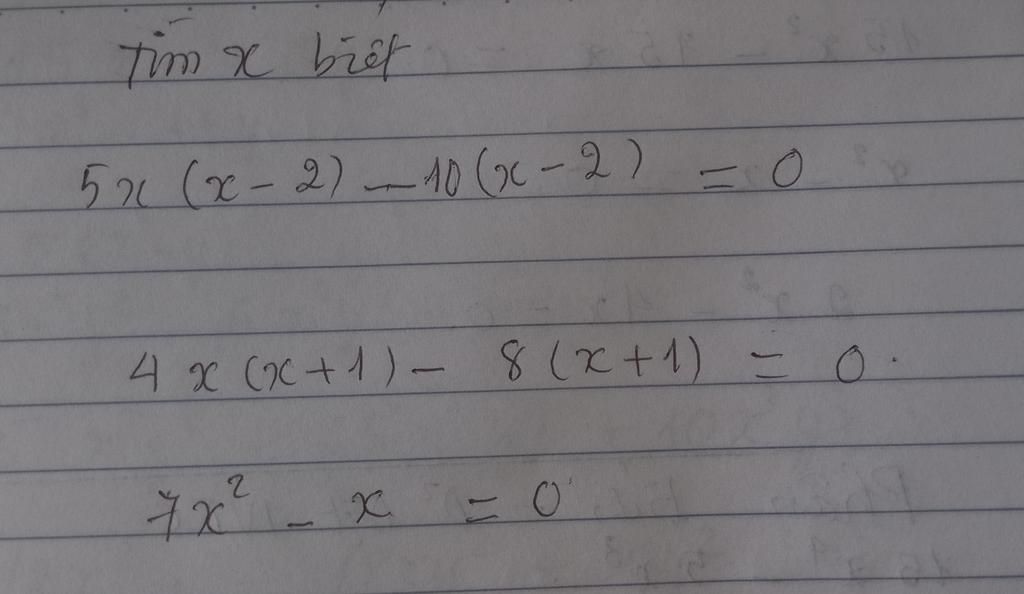 Tìm x biết
5x(x-2)-10(x-2) = 0
4x(x+1)- 8(x+1) = 0.
7x² - x = 0